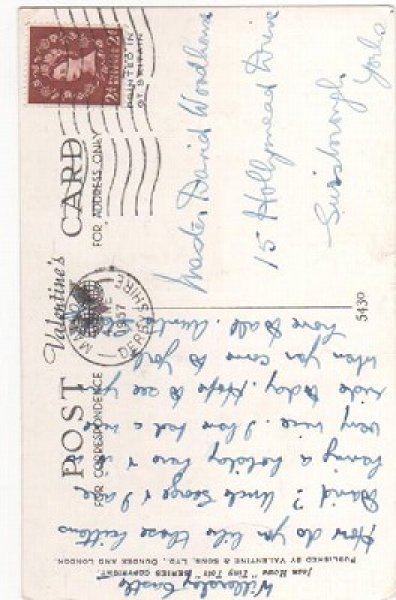 Valentine's
POST CARD
FOR CORRESPONDENCE
FOR ADDRESS ONLY
PRINTED IN
GT. BRITAIN
2D POSTAGE REVENUE 2D
MATLOCK
1957
DERBYSHIRE
Willersley Castle
How do you like these kittens
David? Uncle George & I are
having a holiday here & it is
very nice. I have had a nice
ride today. Hope to see you
when you come to York.
Love to all. Auntie
Master David Woodhams
15 Hollymead Drive
Guisborough
Yorks
5430
Jean Rowe "Tiny Tots" SERIES COPYRIGHT.
PUBLISHED BY VALENTINE & SONS, LTD., DUNDEE AND LONDON.